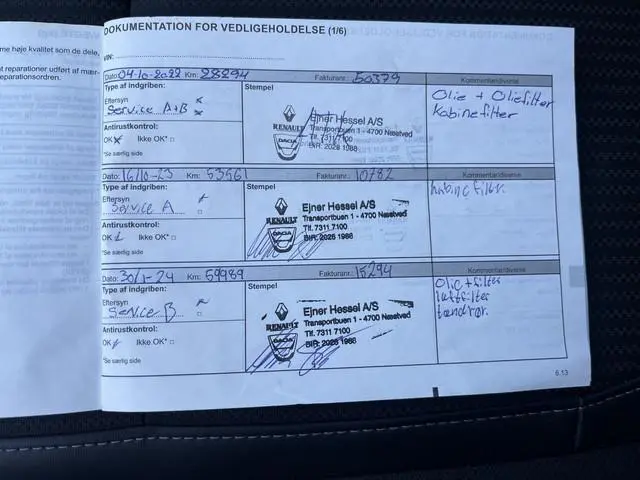 DOKUMENTATION FOR VEDLIGEHOLDELSE (1/6)
me høje kvalitet som de dele,
t reparationer udført af mær-
eparationsordren.
VIN:
Dato: 04-10-2022 Km: 28294 Fakturanr.: 50379 Kommentar/diverse
Type af indgriben:
Eftersyn x
Service A+B x
Antirustkontrol:
OK x Ikke OK* □
*Se særlig side
Stempel
RENAULT
DACIA
Ejner Hessel A/S
Transportbuen 1 - 4700 Næstved
Tlf. 7311 7100
BIR: 2028 1988
Olie + Oliefilter
Kabinefilter
Dato: 16/10-23 Km: 53561 Fakturanr.: 10782 Kommentar/diverse
Type af indgriben:
Eftersyn
Service A □
Antirustkontrol:
OK Ikke OK* □
*Se særlig side
Stempel
RENAULT
DACIA
Ejner Hessel A/S
Transportbuen 1 - 4700 Næstved
Tlf. 7311 7100
BIR: 2028 1988
kabinefilter.
Dato: 30/1-24 Km: 59989 Fakturanr.: 15294 Kommentar/diverse
Type af indgriben:
Eftersyn
Service B □
Antirustkontrol:
OK Ikke OK* □
*Se særlig side
Stempel
RENAULT
DACIA
Ejner Hessel A/S
Transportbuen 1 - 4700 Næstved
Tlf. 7311 7100
BIR: 2028 1988
Olie + filter
luftfilter
tændrør.
6.13